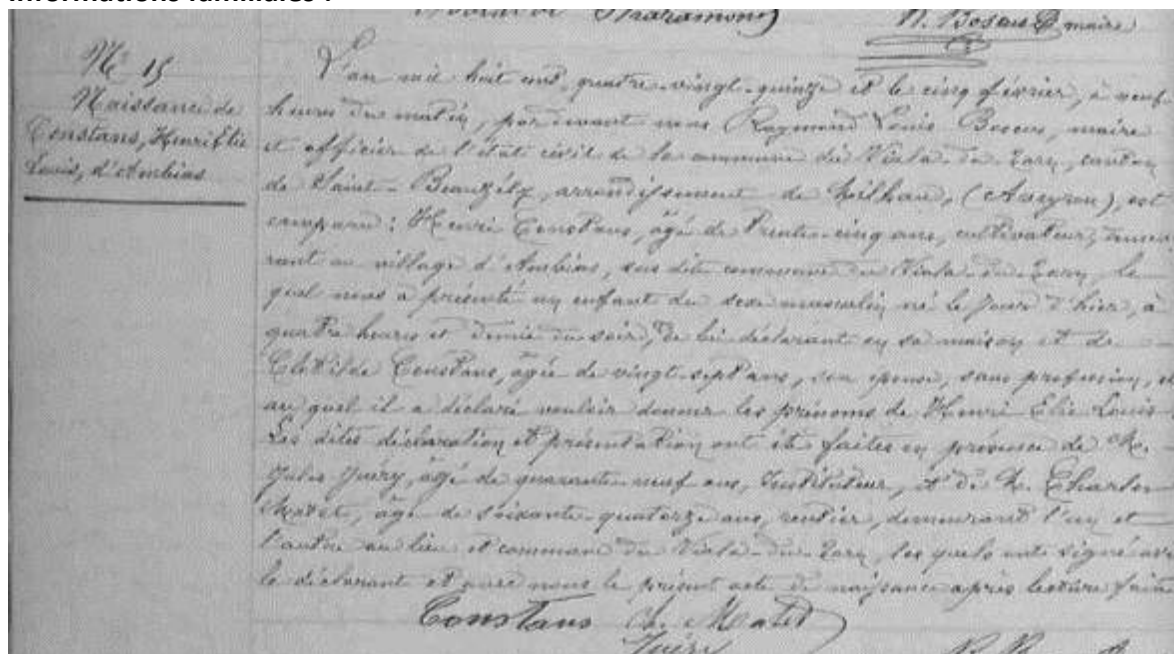 Informations familiales :
maire
N° 15
Naissance de
Constans, Henri Elie
Louis, d'Ambias
L'an mil huit cent quatre-vingt-quinze et le cinq février, à neuf
heures du matin, par devant nous Raymond Louis Boscus, maire
et officier de l'état civil de la commune du Viala-du-Tarn, canton
de Saint-Beauzély, arrondissement de Milhau, (Aveyron), est
comparu : Henri Constans, âgé de trente-cinq ans, cultivateur, demeu
rant au village d'Ambias, sus dite commune du Viala-du-Tarn, le
quel nous a présenté un enfant du sexe masculin né le jour d'hier, à
quatre heures et demie du soir, de lui déclarant en sa maison et de
Clotilde Constans, âgée de vingt-sept ans, son épouse, sans profession, et
au quel il a déclaré vouloir donner les prénoms de Henri Elie Louis
Les dites déclaration et présentation ont été faites en présence de M.
Jules Juéry, âgé de quarante-neuf ans, Instituteur, et de M. Charles
Matet, âgé de soixante-quatorze ans, rentier, demeurant l'un et
l'autre au lieu et commune du Viala-du-Tarn, les quels ont signé avec
le déclarant et avec nous le présent acte de naissance après lecture faite
Constans Ch. Matet
Juéry